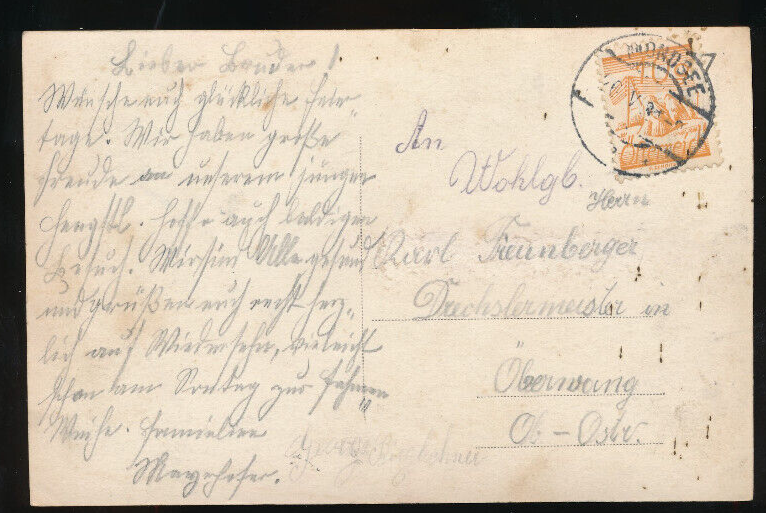 Lieber Bruder!
Wünsche euch glückliche Feier-
tage. Wir haben große
Freude an unserem jungen
Hengstl. Hoffe auch baldigen
Besuch. Wir sind Alle gesund
und grüßen euch recht herz-
lich auf Wiedersehn, vieleicht
schon am Sontag zur Fahnen
Weihe. Familie
Mayrhofer.
MONDSEE
10
Österreich
An
Wohlgb.
Herrn
Karl Freunberger
Drechslermeister in
Oberwang
Ob-Östr.